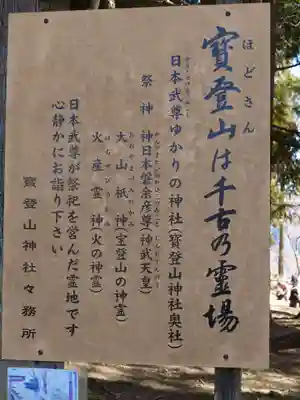 ほどさん
寶登山は千古の霊場
日本武尊ゆかりの神社(寶登山神社奥社)
祭神 神日本磐余彦尊(神武天皇)
大山祇神(宝登山の神霊)
火産霊神(火の神霊)
日本武尊が祭祀を営んだ霊地です
心静かにお詣り下さい
寶登山神社々務所